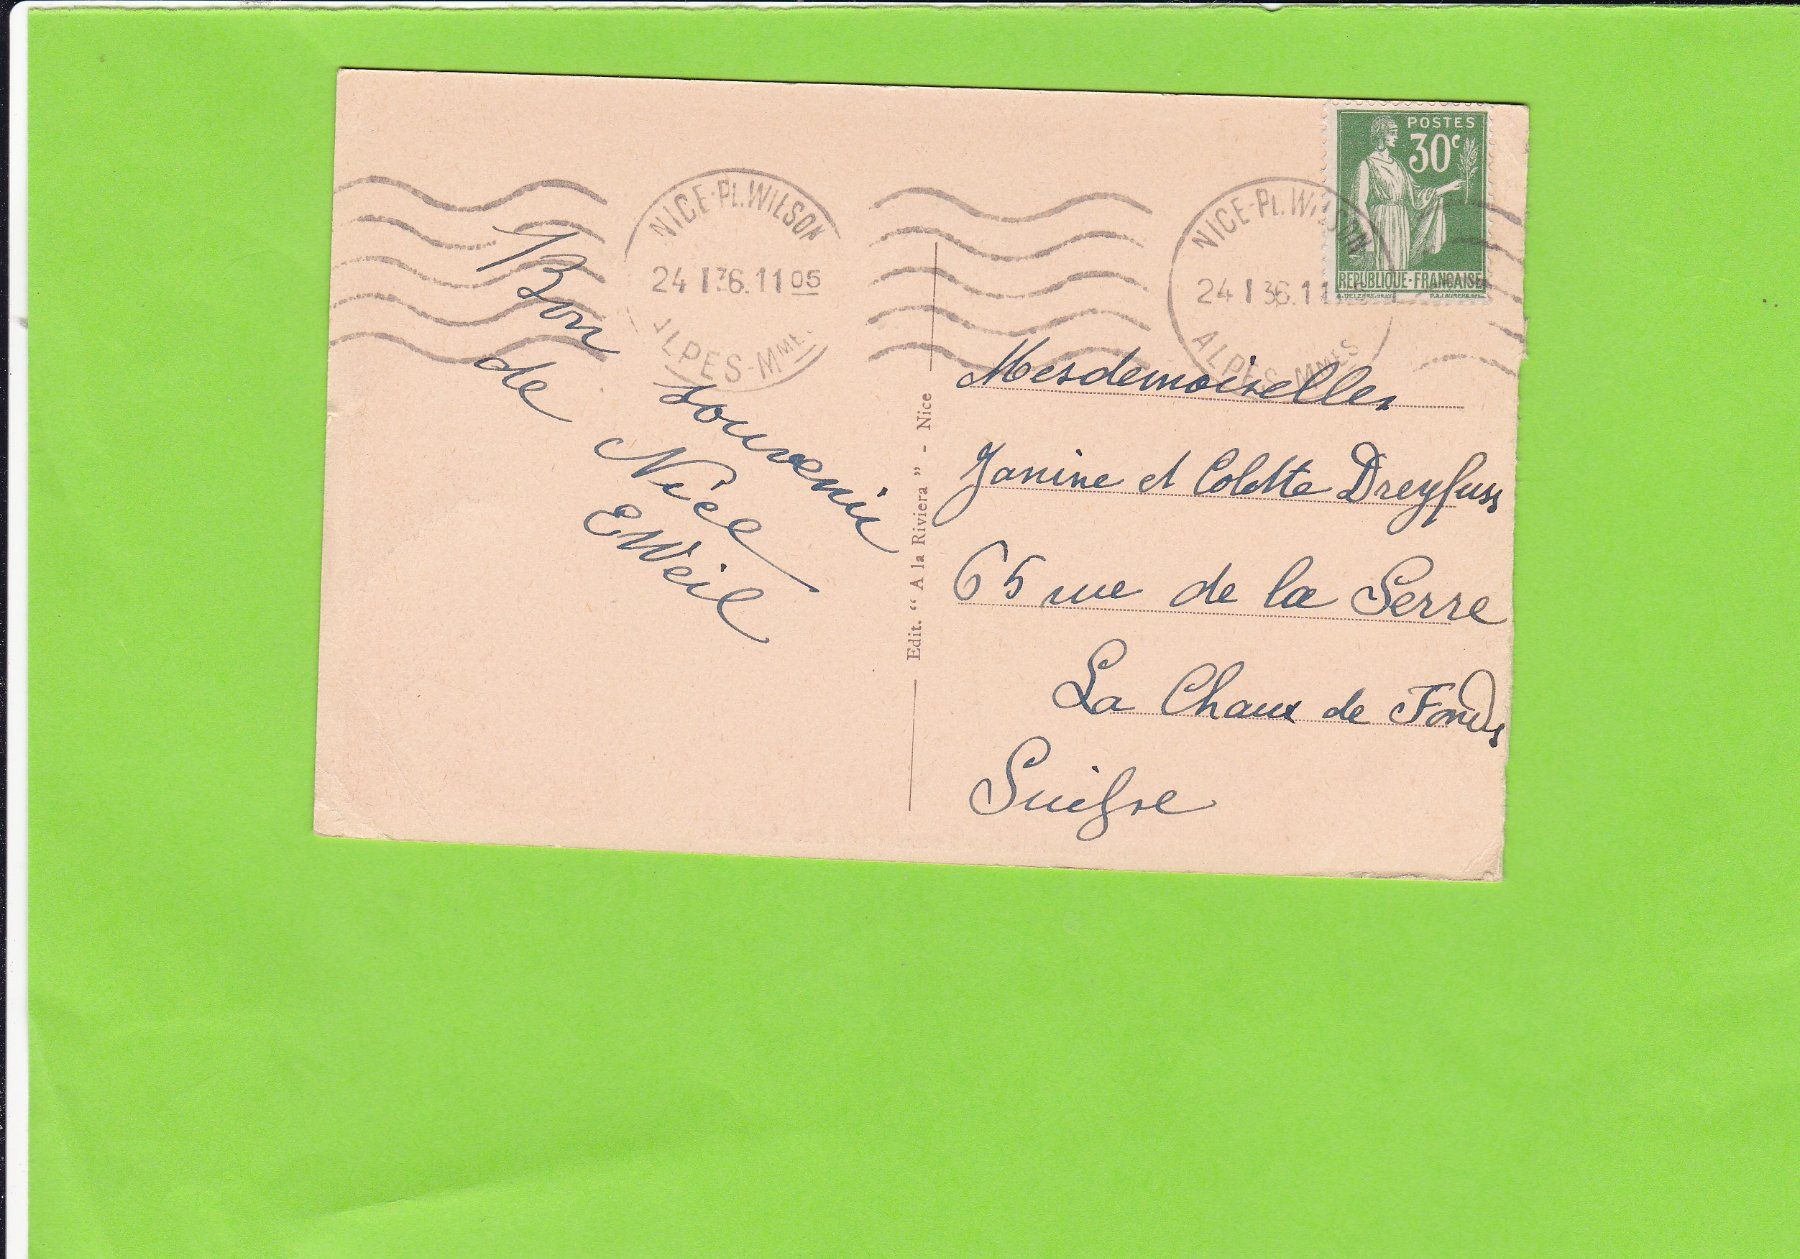 POSTES
30c
REPUBLIQUE-FRANCAISE
NICE-PL.WILSON
24 I 36.11 05
ALPES-MMES
NICE-PL.WILSON
24 I 36.11
ALPES-MMES
Bon souvenir
de Nice
EWeil
Edit. “ A la Riviera ” - Nice
Mesdemoiselles
Janine et Colette Dreyfuss
65 rue de la Serre
La Chaux de Fonds
Suisse